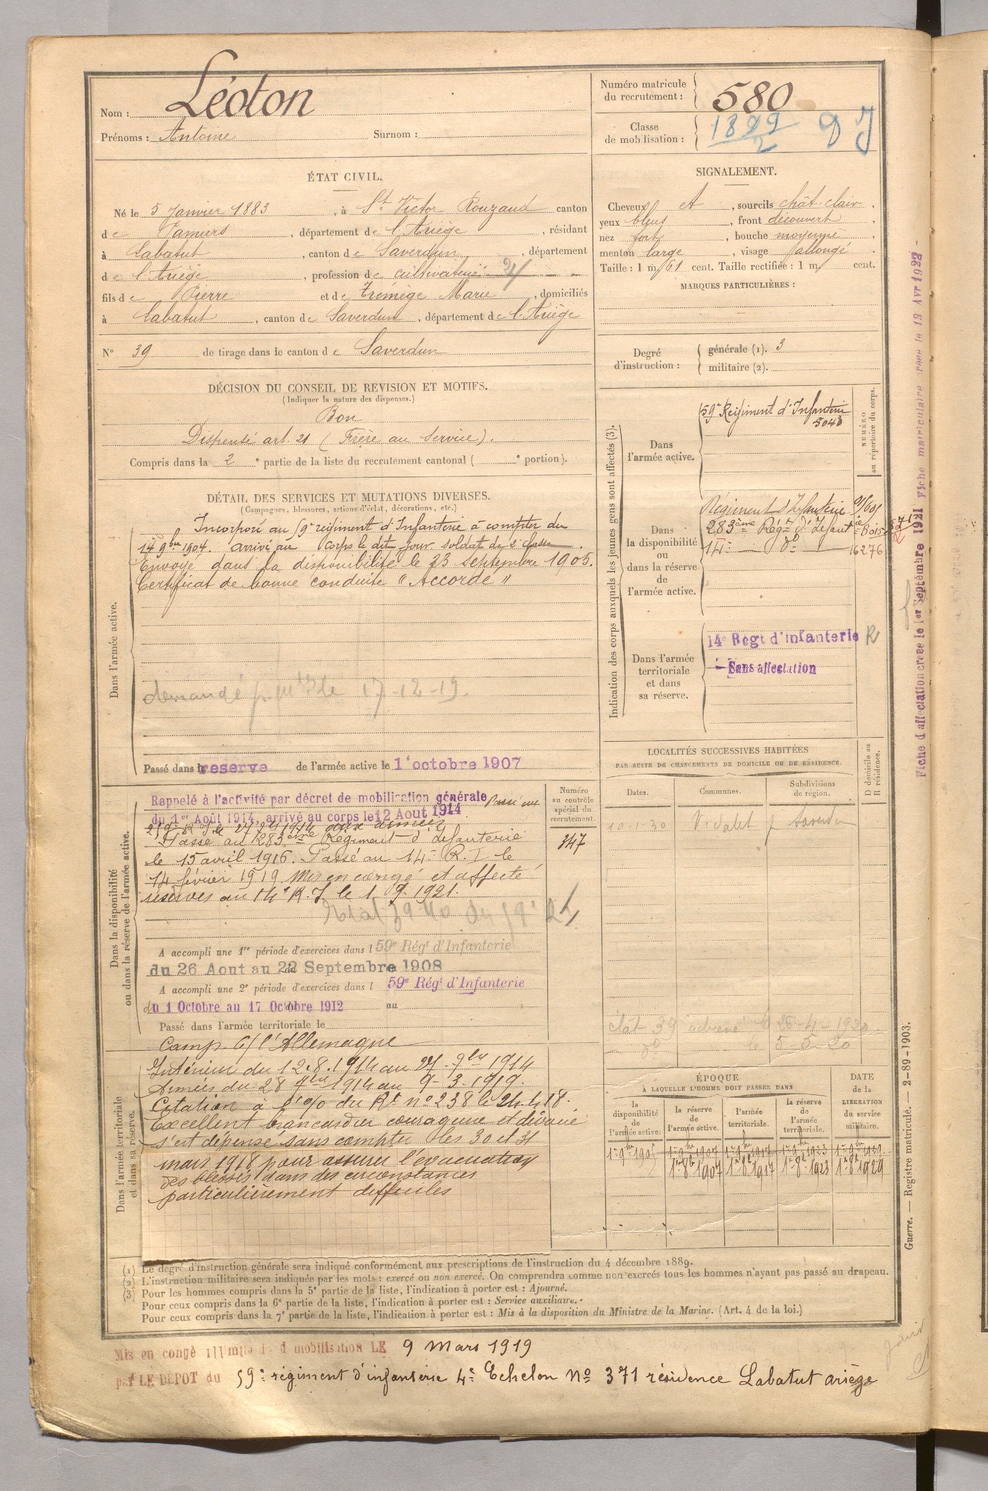 Nom : Léoton
Prénoms : Antoine Surnom :
Numéro matricule du recrutement : 580
Classe de mobilisation : 1899
ÉTAT CIVIL.
Né le 5 Janvier 1883, à St Victor Rouzaud canton
de Pamiers, département de l'Ariège, résidant
à Labatut, canton de Saverdun, département
de l'Ariège, profession de cultivateur
fils de Pierre et de Trémège Marie, domiciliés
à Labatut, canton de Saverdun, département de l'Ariège
N° 39 de tirage dans le canton de Saverdun
SIGNALEMENT.
Cheveux et, sourcils chât. clair,
yeux bleus, front découvert,
nez fort, bouche moyenne,
menton large, visage allongé.
Taille : 1 m. 61 cent. Taille rectifiée : 1 m. cent.
MARQUES PARTICULIÈRES :
Degré d'instruction : générale (1). 3
militaire (2).
DÉCISION DU CONSEIL DE REVISION ET MOTIFS.
(Indiquer la nature des dispenses.)
Bon
Dispensé art. 21 (Frère au Service).
Compris dans la 2e partie de la liste du recrutement cantonal ( e portion).
DÉTAIL DES SERVICES ET MUTATIONS DIVERSES.
(Campagnes, blessures, actions d'éclat, décorations, etc.)
Dans l'armée active.
Incorporé au 59e régiment d'Infanterie à compter du
14 9bre 1904. arrivé au corps le dit jour soldat de 2e classe.
Envoyé dans la disponibilité le 23 septembre 1905.
Certificat de bonne conduite "Accordé"
demandé le 17-12-19.
Passé dans la réserve de l'armée active le 1er octobre 1907
Indication des corps auxquels les jeunes gens sont affectés (3).
NUMÉRO au répertoire du corps.
Dans l'armée active.
59e Régiment d'Infanterie
5043
Dans la disponibilité ou dans la réserve de l'armée active.
Régiment d'Infanterie
283ème Régt d'Infant
14e do 16276
Dans l'armée territoriale et dans sa réserve.
14e Regt d'infanterie R
Sans affectation
Dans la disponibilité ou dans la réserve de l'armée active.
Numéro au contrôle spécial du recrutement.
347
Rappelé à l'activité par décret de mobilisation générale Passé aux
du 1er Août 1914, arrivé au corps le 12 Aout 1914
Passé au 283ème Régiment d'Infanterie
le 15 avril 1916. Passé au 14e R.I. le
14 février 1919 Mis en congé et affecté
réserves au 14e R.I le 1.9.1921.
A accompli une 1re période d'exercices dans l 59e Régt d'Infanterie
du 26 Aout au 22 Septembre 1908
A accompli une 2e période d'exercices dans l 59e Régt d'Infanterie
du 1 Octobre au 17 Octobre 1912 au
Passé dans l'armée territoriale le
Dans l'armée territoriale et dans sa réserve.
Camp. c/ l'Allemagne
Intérieur du 12.8.1914 au 27. 9bre 1914
Armées du 28 9bre 1914 au 9-3.1919.
Citation à l'o/o du Rt n° 238 le 24.4.18.
Excellent brancardier courageux et dévoué
s'est dépensé sans compter les 30 et 31
mars 1918 pour assurer l'évacuation
des blessés dans des circonstances
particulièrement difficiles
LOCALITÉS SUCCESSIVES HABITÉES
PAR SUITE DE CHANGEMENTS DE DOMICILE OU DE RÉSIDENCE.
Dates. Communes. Subdivisions de région. D domicile ou R résidence.
10-1-30
ÉPOQUE
À LAQUELLE L'HOMME DOIT PASSER DANS
DATE de la LIBÉRATION du service militaire.
la disponibilité de l'armée active.
la réserve de l'armée active.
l'armée territoriale.
la réserve de l'armée territoriale.
(1) Le degré d'instruction générale sera indiqué conformément aux prescriptions de l'instruction du 4 décembre 1889.
(2) L'instruction militaire sera indiquée par les mots : exercé ou non exercé. On comprendra comme non exercés tous les hommes n'ayant pas passé au drapeau.
(3) Pour les hommes compris dans la 5e partie de la liste, l'indication à porter est : Ajourné.
Pour ceux compris dans la 6e partie de la liste, l'indication à porter est : Service auxiliaire.
Pour ceux compris dans la 7e partie de la liste, l'indication à porter est : Mis à la disposition du Ministre de la Marine. (Art. 4 de la loi.)
Mis en congé illimité de démobilisation LE 9 Mars 1919
par LE DÉPOT du 59e régiment d'infanterie 4e Echelon N° 371 résidence Labatut ariège
Guerre. — Registre matricule. — 2-89-1903.
Fiche d'affectation créée le 1er septembre 1921 Fiche matriculaire créée le 13 Avr 1922